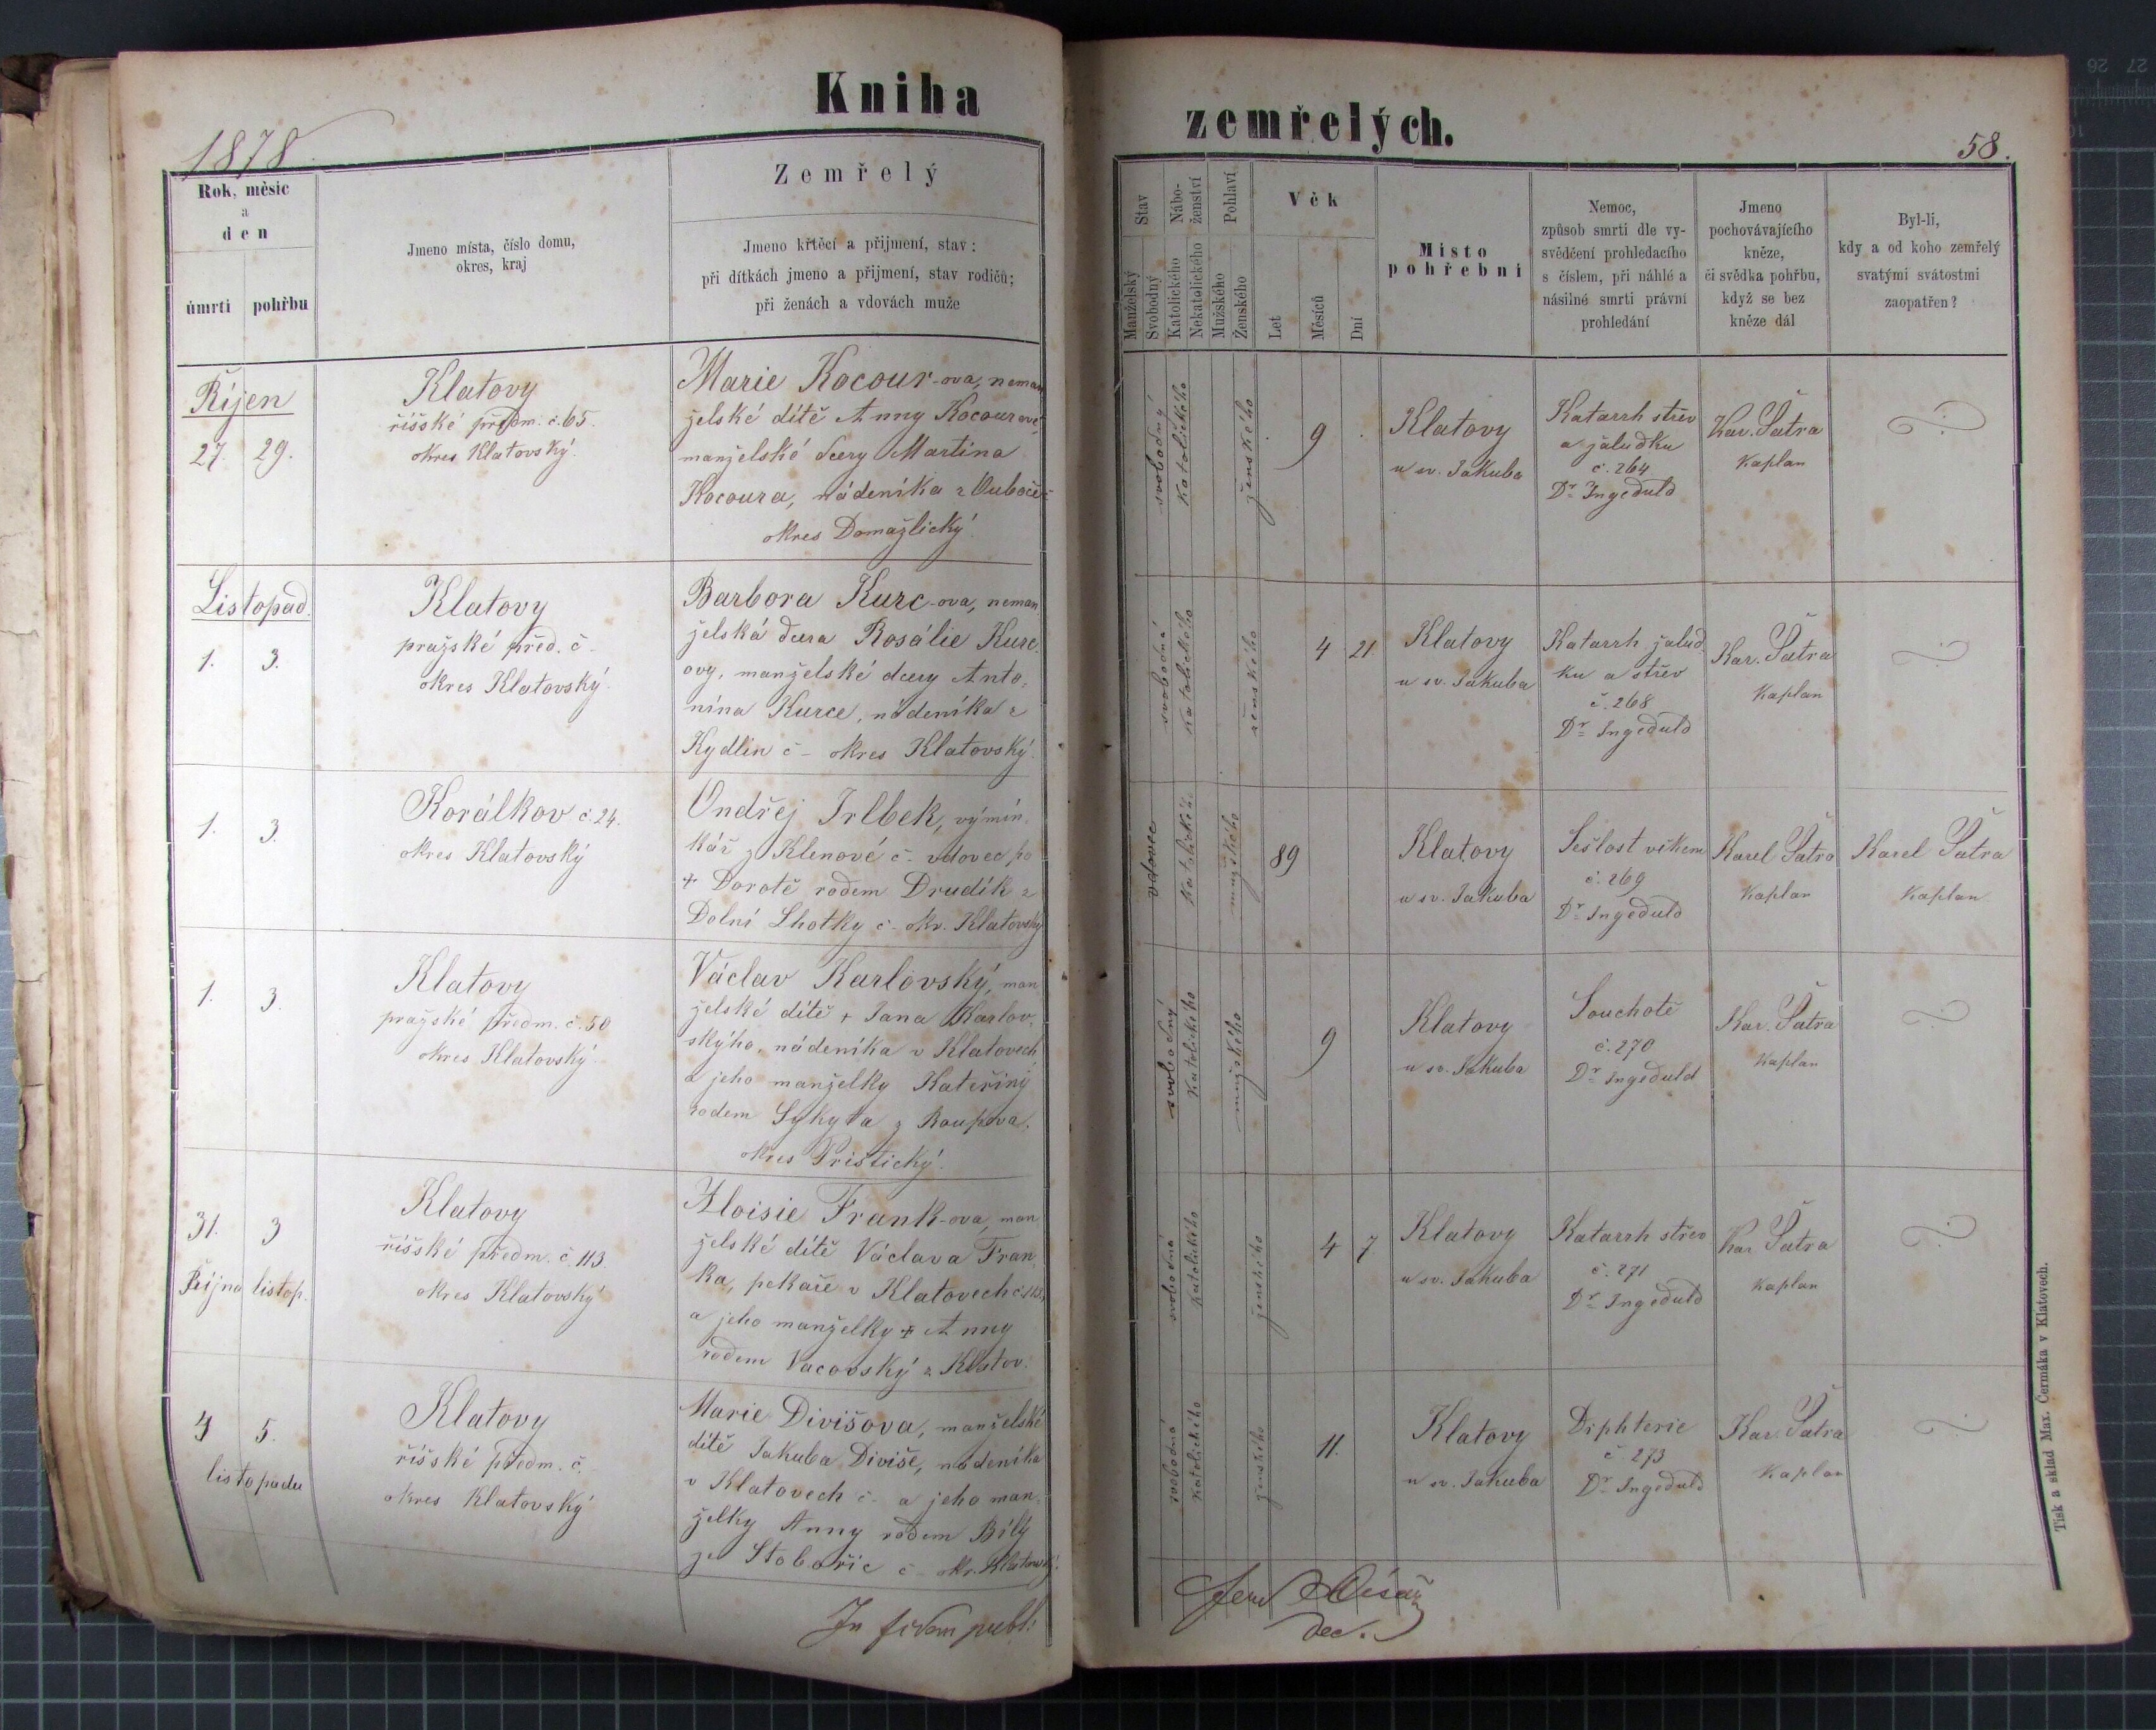 Kniha
zemřelých.
1878
58.
Rok, měsíc
a
den
úmrtí pohřbu
Jmeno místa, číslo domu,
okres, kraj
Zemřelý
Jmeno křtěcí a přijmení, stav:
při dítkách jmeno a přijmení, stav rodičů;
při ženách a vdovách muže
Stav
Manželský
Svobodný
Nábo-
ženství
Katolického
Nekatolického
Pohlaví
Mužského
Ženského
Věk
Let
Měsíců
Dní
Místo
pohřební
Nemoc,
způsob smrti dle vy-
svědčení prohledacího
s číslem, při náhlé a
násilné smrti právní
prohledání
Jmeno
pochovávajícího
kněze,
či svědka pohřbu,
když se bez
kněze dál
Byl-li,
kdy a od koho zemřelý
svatými svátostmi
zaopatřen?
Říjen
27. 29.
Klatovy
říšské předm. č. 65.
okres Klatovský.
Marie Kocour-ova, neman
želské dítě Anny Kocourové
manželské dcery Martina
Kocoura, nádeníka z
okres Domažlický.
svobodný
Katolického
ženského
9
Klatovy
u sv. Jakuba
Katarrh střev
a žaludku
č. 264
Dr. Ingeduld
Kar. Šatra
Kaplan
Listopad.
1. 3.
Klatovy
pražské před. č -
okres Klatovský.
Barbora Kurc-ova, neman
želská dcera Rosálie Kurc
ovy, manželské dcery Anto,
nína Kurce, nádeníka z
Kydlin č - okres Klatovský.
svobodná
Katolického
ženského
4 21
Klatovy
u sv. Jakuba
Katarrh žalud
ku a střev
č. 268
Dr. Ingeduld
Kar. Šatra
Kaplan
1. 3.
Korálkov č. 24.
okres Klatovský
Ondřej Irlbek, výmin.
kář z Klenové č - vdovec po
+ Dorotě rodem Drudík z
Dolní Lhotky č - okr. Klatovský
vdovec
Katolické.
mužského
89
Klatovy
u sv. Jakuba
Sešlost věkem
č. 269
Dr. Ingeduld
Karel Šatra
Kaplan
Karel Šatra
Kaplan
1. 3.
Klatovy
pražské předm. č. 50
okres Klatovský.
Václav Karlovský, man
želské dítě + Jana Karlov,
skýho, nádeníka v Klatovech
a jeho manželky Kateřiny
rodem Sykyta z Roupova,
okres Přištický.
svobodný
Katolického
mužského
9
Klatovy
u sv. Jakuba
Souchotě
č. 270
Dr. Ingeduld
Kar. Šatra
Kaplan
31. 3
Října listop.
Klatovy
říšské předm. č. 113.
okres Klatovský
Aloisie Frank-ova, man
želské dítě Václava Fran
ka, pekaře v Klatovech č. 113,
a jeho manželky + Anny
rodem Vacovský z Klatov.
svobodná
katolického
ženského
4 7
Klatovy
u sv. Jakuba
Katarrh střev
č. 271
Dr. Ingeduld
Kar Šatra
Kaplan
4 5.
listopadu
Klatovy
říšské předm. č.
okres Klatovský
Marie Divišova, manželské
dítě Jakuba Diviše, nádeníka
v Klatovech č - a jeho man,
želky Anny rodem Bílý
ze Stobořic č - okr. Klatovský.
svobodná
katolického
ženského
11.
Klatovy
u sv. Jakuba
Diphterie
č. 273
Dr. Ingeduld
Kar. Šatra
Kaplan
In fidem publ:
dec.
Tisk a sklad Max. Čermáka v Klatovech.